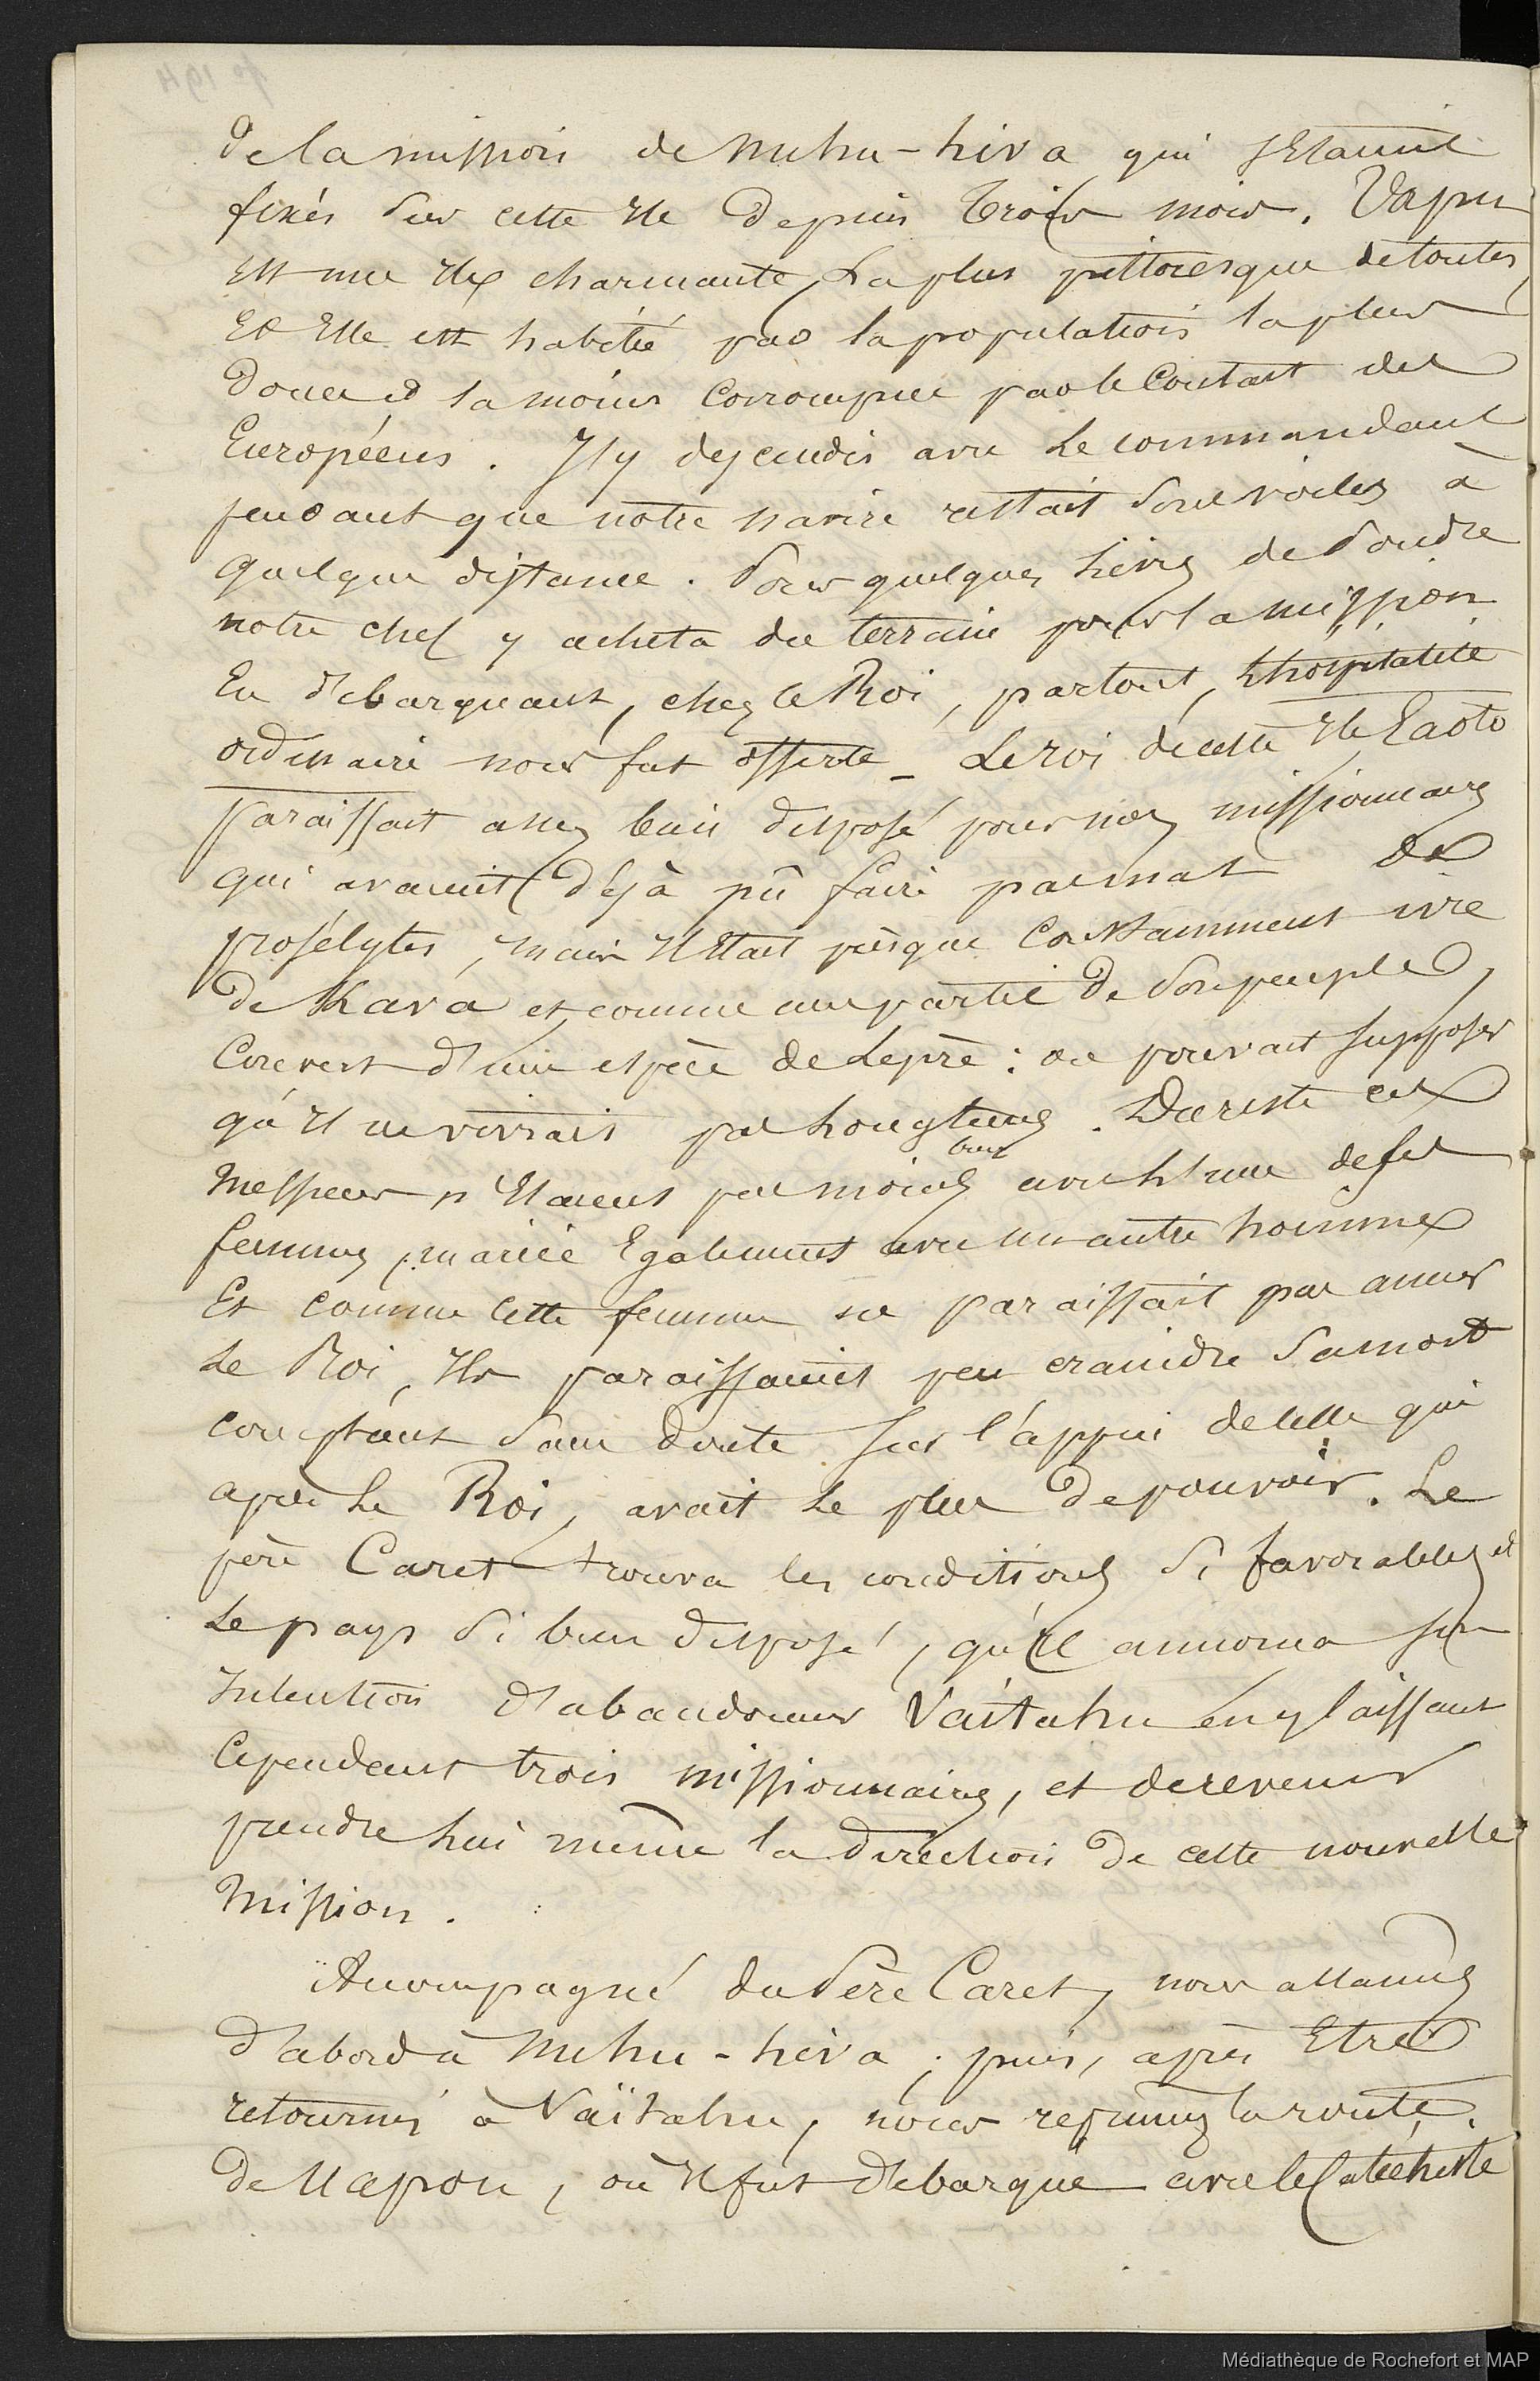 de la mission de nuhu-hiva qui s'Etaient
fixés sur cette Ile depuis trois mois. Vapu
Est une Ile charmante, la plus pittoresque de toutes,
Et Elle est habitée par la population la plus
douce et la moins corrompue par le contact des
Européens. J'y descendis avec le commandant
pendant que notre navire restait sous voiles à
quelque distance. Pour quelques livres de poudre
notre chef y acheta du terrain pour la mission
En débarquant, chez le Roi, partout, l'hospitalité
ordinaire nous fut offerte _ Le roi de cette Ile Eaoto
paraissait assez bien disposé pour nos missionnaires
qui avaient déjà pû faire pas mal de
prosélytes, mais Il Etait presque constamment ivre
de Kava et, comme une partie de son peuple,
couvert d'une espèce de Lèpre : on pouvait supposer
qu'Il ne vivrait pas longtems. Du reste ces
Messieurs n'Etaient pas moins bien avec l'une de ses
femmes, mariée Egalement avec un autre homme
Et comme cette femme ne paraissait pas aimer
le Roi, Ils paraissaient peu craindre sa mort
comptant sans doute sur l'appui de celle qui
après le Roi, avait le plus de pouvoir. Le
père Caret trouva les conditions si favorables et
le pays si bien disposé, qu'il annonca son
Intention d'abandonner Vaïtahu en y laissant
cependant trois missionnaires, et de revenir
prendre lui même la direction de cette nouvelle
Mission.
Accompagné du Père Caret, nous allames
d'abord à nuhu-hiva ; puis, après Etre
retournés à Vaïtahu, nous reprimes la route
de Uapou, où Il fut débarqué avec le Catéchiste
Médiathèque de Rochefort et MAP